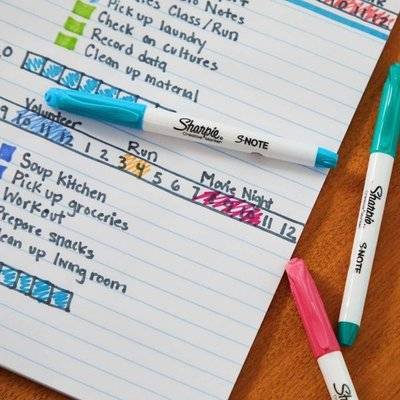 Class/Run
Notes
Pick up laundry
Check on cultures
Record data
Clean up material
Volunteer
Run
Movie Night
9 10 11 12 1 2 3 4 5 6 7 8 9 10 11 12
Soup Kitchen
Pick up groceries
Workout
Prepare snacks
Clean up living room
Sharpie
S·NOTE
Sharpie
S·NOTE